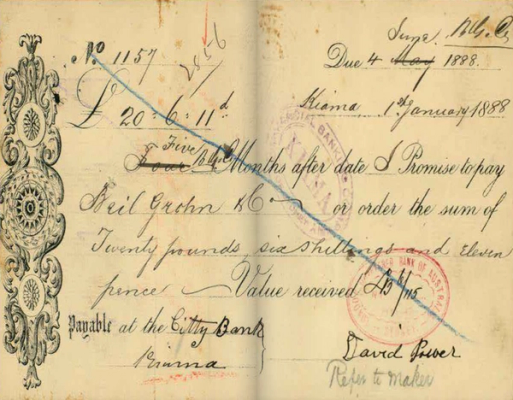 June
No 1157
2856
Due 4 May 1888.
£ 20:6:11d
Kiama, 1st January 1888
Five
Four Months after date I Promise to pay
Neil Grohn & Co or order the sum of
Twenty pounds, six shillings and eleven
pence Value received
Payable at the Citty Bank
Kiama
David Power
Refer to Maker